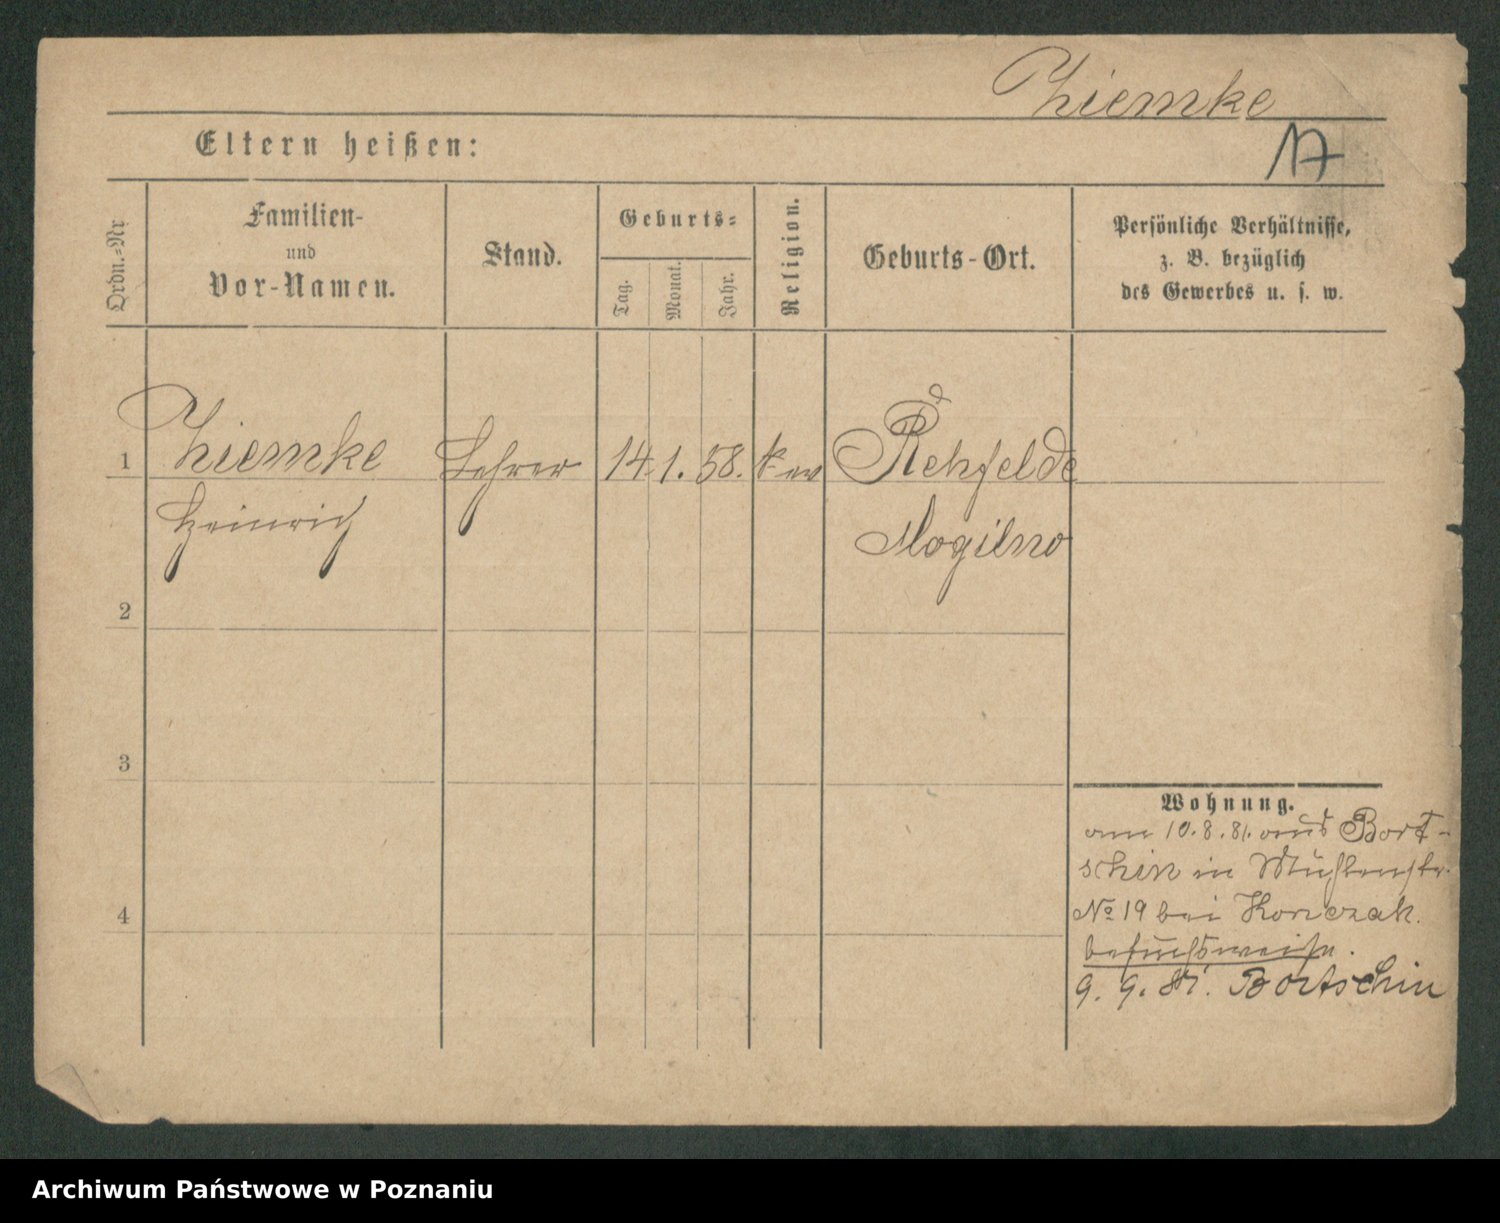 Ziemke
Eltern heißen:
17
Ordn.-Nr
Familien-
und
Vor-Namen.
Stand.
Geburts-
Tag.
Monat.
Jahr.
Religion.
Geburts-Ort.
Persönliche Verhältnisse,
z. B. bezüglich
des Gewerbes u. s. w.
1 Ziemke Lehrer 14. 1. 58. ev Rehfelde
Heinrich Mogilno
2
3
4
Wohnung.
am 10.8.81. aus Bort-
schin in Mühlenstr.
No 19 bei Konczak.
besuchsweise.
9. 9. 81. Bortschin
Archiwum Państwowe w Poznaniu